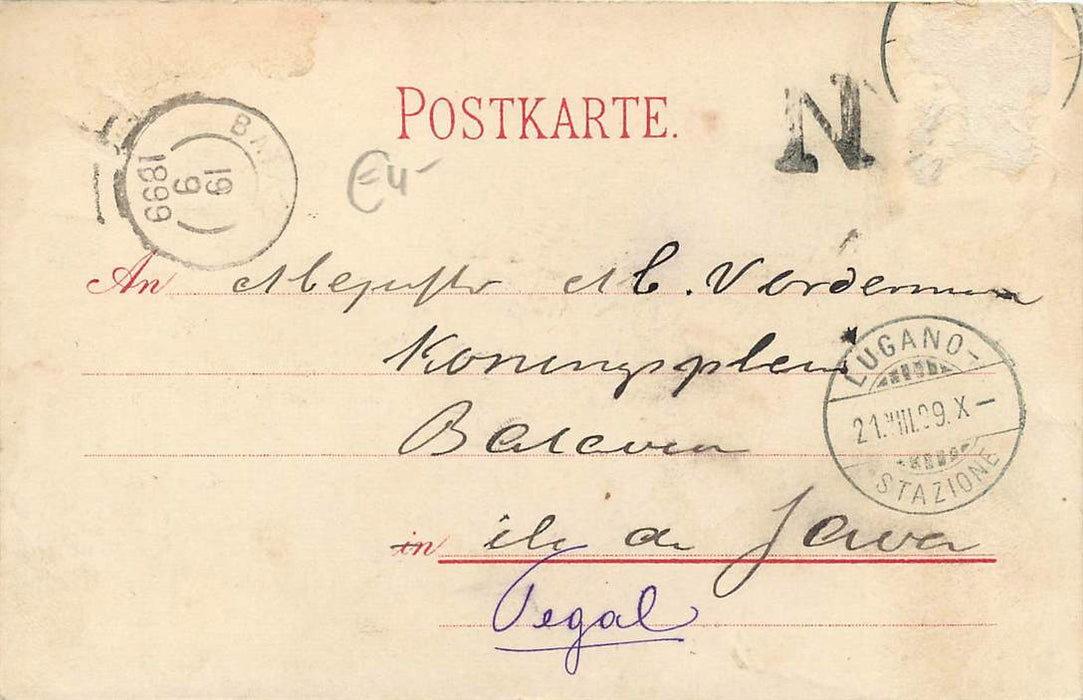 POSTKARTE.
N
BA
19
9
1899
€4-
An Mejuffr M. Vorderman
Koningsplein
Batavia
LUGANO-
21.VIII.99.X-
STAZIONE
in ile de Java
Tegal